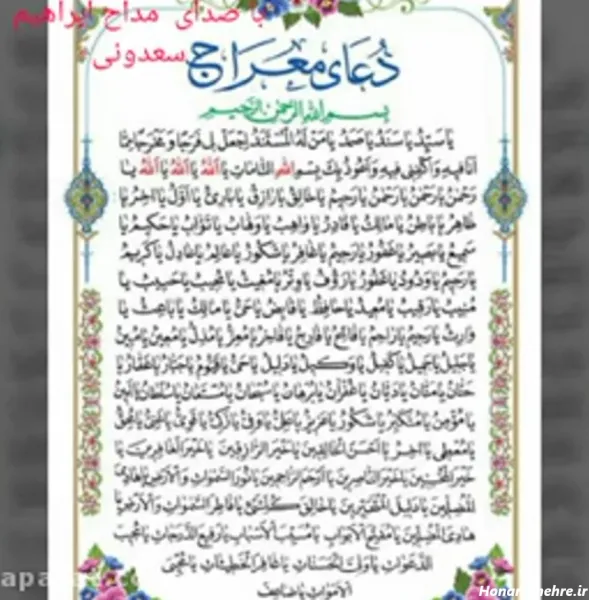 با صدای مداح ابراهیم
سعدونی
دُعای معراج
بسم الله الرحمن الرحیم
یا سَیِّدُ یا سَنَدُ یا صَمَدُ یا مَن لَهُ المُستَنَدُ اِجعَل لی فَرَجًا وَ مَخرَجًا مِمّا
اَنَا فیهِ وَ اَکفِنی فیهِ وَ اَعُوذُ بِكَ بِسمِ اللهِ التّامّاتِ یا اَللهُ یا اَللهُ یا اَللهُ یا
رَحمٰنُ یا رَحمٰنُ یا رَحمٰنُ یا رَحیمُ یا خالِقُ یا رازِقُ یا بارِئُ یا اَوَّلُ یا اخِرُ یا
ظاهِرُ یا باطِنُ یا مالِكُ یا قادِرُ یا واهِبُ یا وَهّابُ یا تَوّابُ یا حَکیمُ یا
سَمیعُ یا بَصیرُ یا غَفُورُ یا رَحیمُ یا غافِرُ یا شَکُورُ یا عالِمُ یا عادِلُ یا کَریمُ
یا رَحیمُ یا وَدُودُ یا غَفُورُ یا رَؤُفُ یا وِترُ یا مُغیثُ یا مُجیبُ یا حَبیبُ یا
مُنیبُ یا رَقیبُ یا مَعیدُ یا حافِظُ یا قابِضُ یا حَیُّ یا مالِكُ یا باعِثُ یا
وارِثُ یا رَحیمُ یا راحِمُ یا فاتِحُ یا فارِجُ یا فاخِرُ یا مُعِزُّ یا مُذِلُّ یا مُعینُ یا مُبینُ
یا جَلیلُ یا جَمیلُ یا کَفیلُ یا وَکیلُ یا دَلیلُ یا حَیُّ یا قَیُّومُ یا جَبّارُ یا غَفّارُ یا
حَنّانُ یا مَنّانُ یا دَیّانُ یا غُفرانُ یا بُرهانُ یا سُبحانُ یا مُستَعانُ یا سُلطانُ یا اَمینُ
یا مُؤمِنُ یا مُتَکَبِّرُ یا شَکُورُ یا عَزیزُ یا عَلِیُّ یا وَفِیُّ یا زَکِیُّ یا قَوِیُّ یا غَنِیُّ یا مُحِقُّ
یا مُعطی یا اخِرُ یا اَحسَنَ الخالِقینَ یا خَیرَ الرّازِقینَ یا خَیرَ الغافِرینَ یا
خَیرَ المُحسِنینَ یا خَیرَ النّاصِرینَ یا اَرحَمَ الرّاحِمینَ یا نُورَ السَّمٰواتِ وَ الاَرضِ یا هادِیَ
المُضِلّینَ یا دَلیلَ المُتَحَیِّرینَ یا خالِقَ کُلِّ شَیءٍ یا فاطِرَ السَّمٰواتِ وَ الاَرضِ یا
هادِیَ المُضِلّینَ یا مُفَتِّحَ الاَبوابِ یا مُسَبِّبَ الاَسبابِ یا رَفیعَ الدَّرَجاتِ یا مُجیبَ
الدَّعَواتِ یا وَلِیَّ الحَسَناتِ یا غافِرَ الخَطیئاتِ یا مُحیِیَ
الاَمواتِ یا ضاعِفَ
Honaremehre.ir